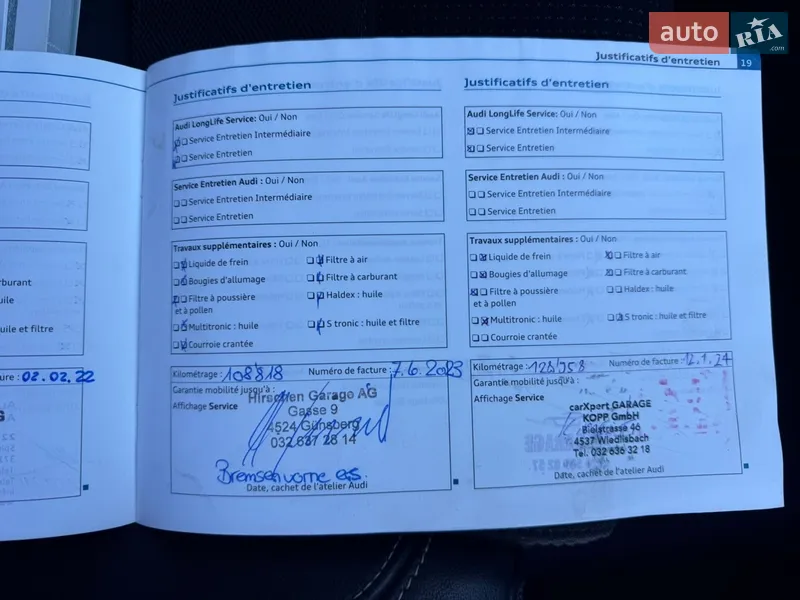 auto RIA .com
Justificatifs d'entretien 19
arburant
uile
uile et filtre
ure : 02.02.22
Justificatifs d'entretien
Audi LongLife Service: Oui / Non
Service Entretien Intermédiaire
Service Entretien
Service Entretien Audi : Oui / Non
Service Entretien Intermédiaire
Service Entretien
Travaux supplémentaires : Oui / Non
Liquide de frein
Filtre à air
Bougies d'allumage
Filtre à carburant
Filtre à poussière
et à pollen
Haldex : huile
Multitronic : huile
S tronic : huile et filtre
Courroie crantée
Kilométrage : 108'818 Numéro de facture : 7.6.2023
Garantie mobilité jusqu'à :
Affichage Service
Hirschen Garage AG
Gasse 9
4524 Günsberg
032 637 28 14
Bremsen vorne ers.
Date, cachet de l'atelier Audi
Justificatifs d'entretien
Audi LongLife Service: Oui / Non
Service Entretien Intermédiaire
Service Entretien
Service Entretien Audi : Oui / Non
Service Entretien Intermédiaire
Service Entretien
Travaux supplémentaires : Oui / Non
Liquide de frein
Filtre à air
Bougies d'allumage
Filtre à carburant
Filtre à poussière
et à pollen
Haldex : huile
Multitronic : huile
S tronic : huile et filtre
Courroie crantée
Kilométrage : Numéro de facture : 12.1.24
Garantie mobilité jusqu'à :
Affichage Service
carXpert GARAGE
KOPP GmbH
Bielstrasse 46
4537 Wiedlisbach
Tel. 032 636 32 18
Date, cachet de l'atelier Audi